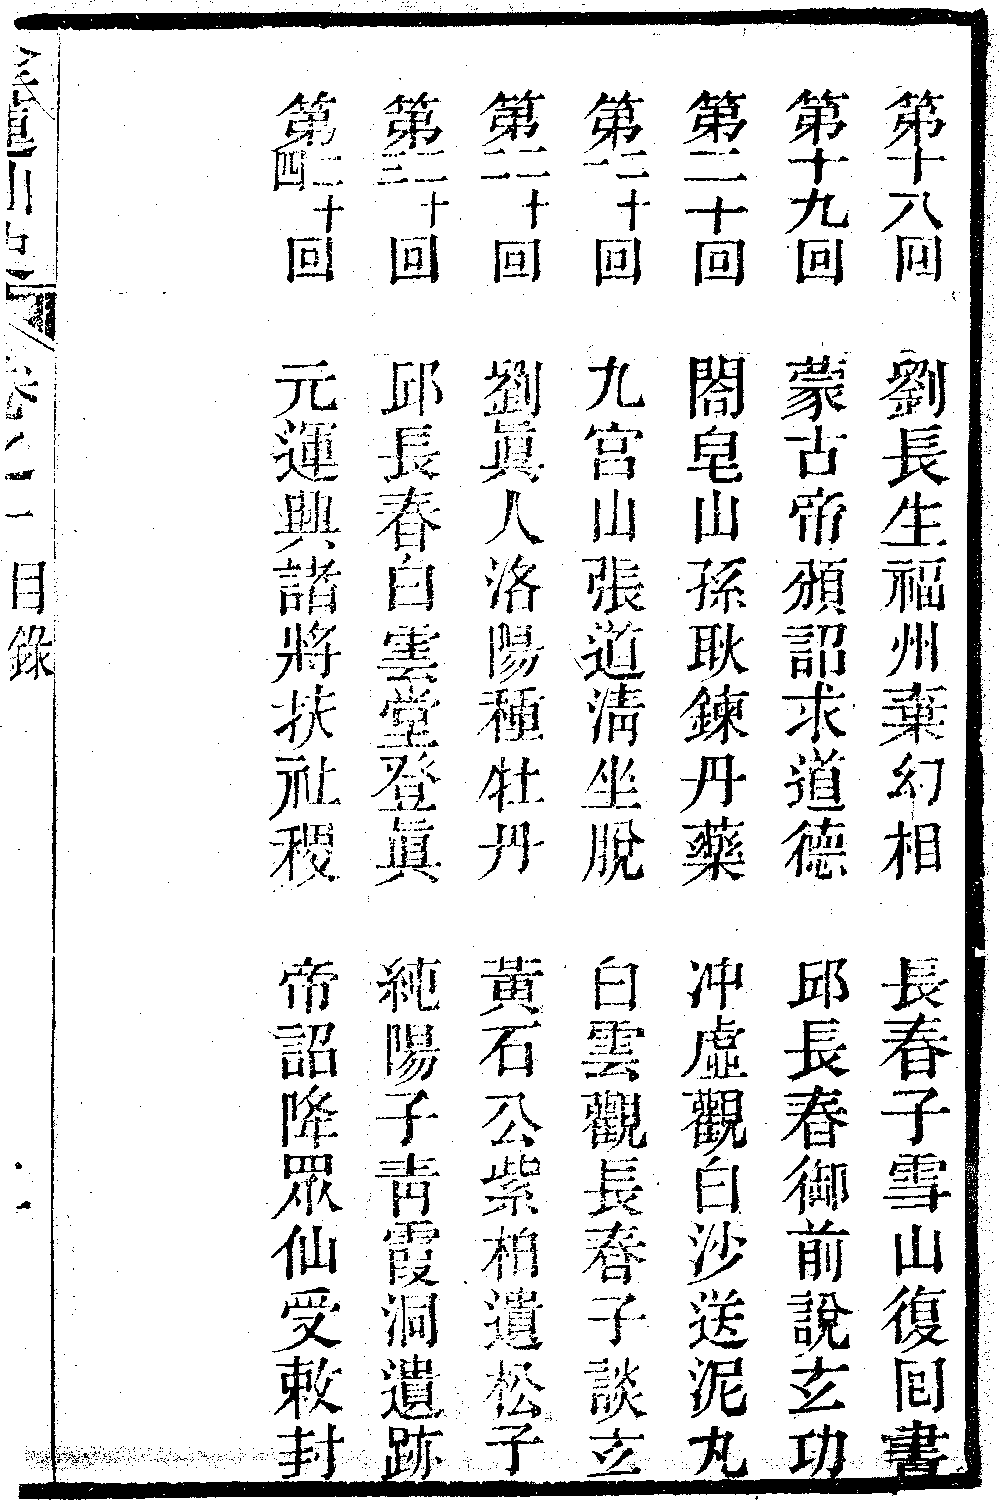 第十八回　劉長生福州棄幻相　長春子雪山復回書
第十九回　蒙古帝頒詔求道德　邱長春御前說玄功
第二十回　閤皂山孫耿鍊丹藥　冲虛觀白沙送泥丸
第二十一回　九宮山張道清坐脫　白雲觀長春子談玄
第二十二回　劉眞人洛陽種牡丹　黃石公紫柏遺松子
第二十三回　邱長春白雲堂登眞　純陽子靑霞洞遺跡
第二十四回　元運興諸將扶社稷　帝詔降眾仙受敕封
目錄